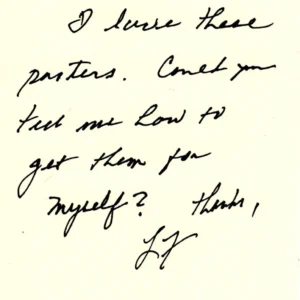 I love these
posters. Could you
tell me how to
get them for
myself? Thanks,
LF